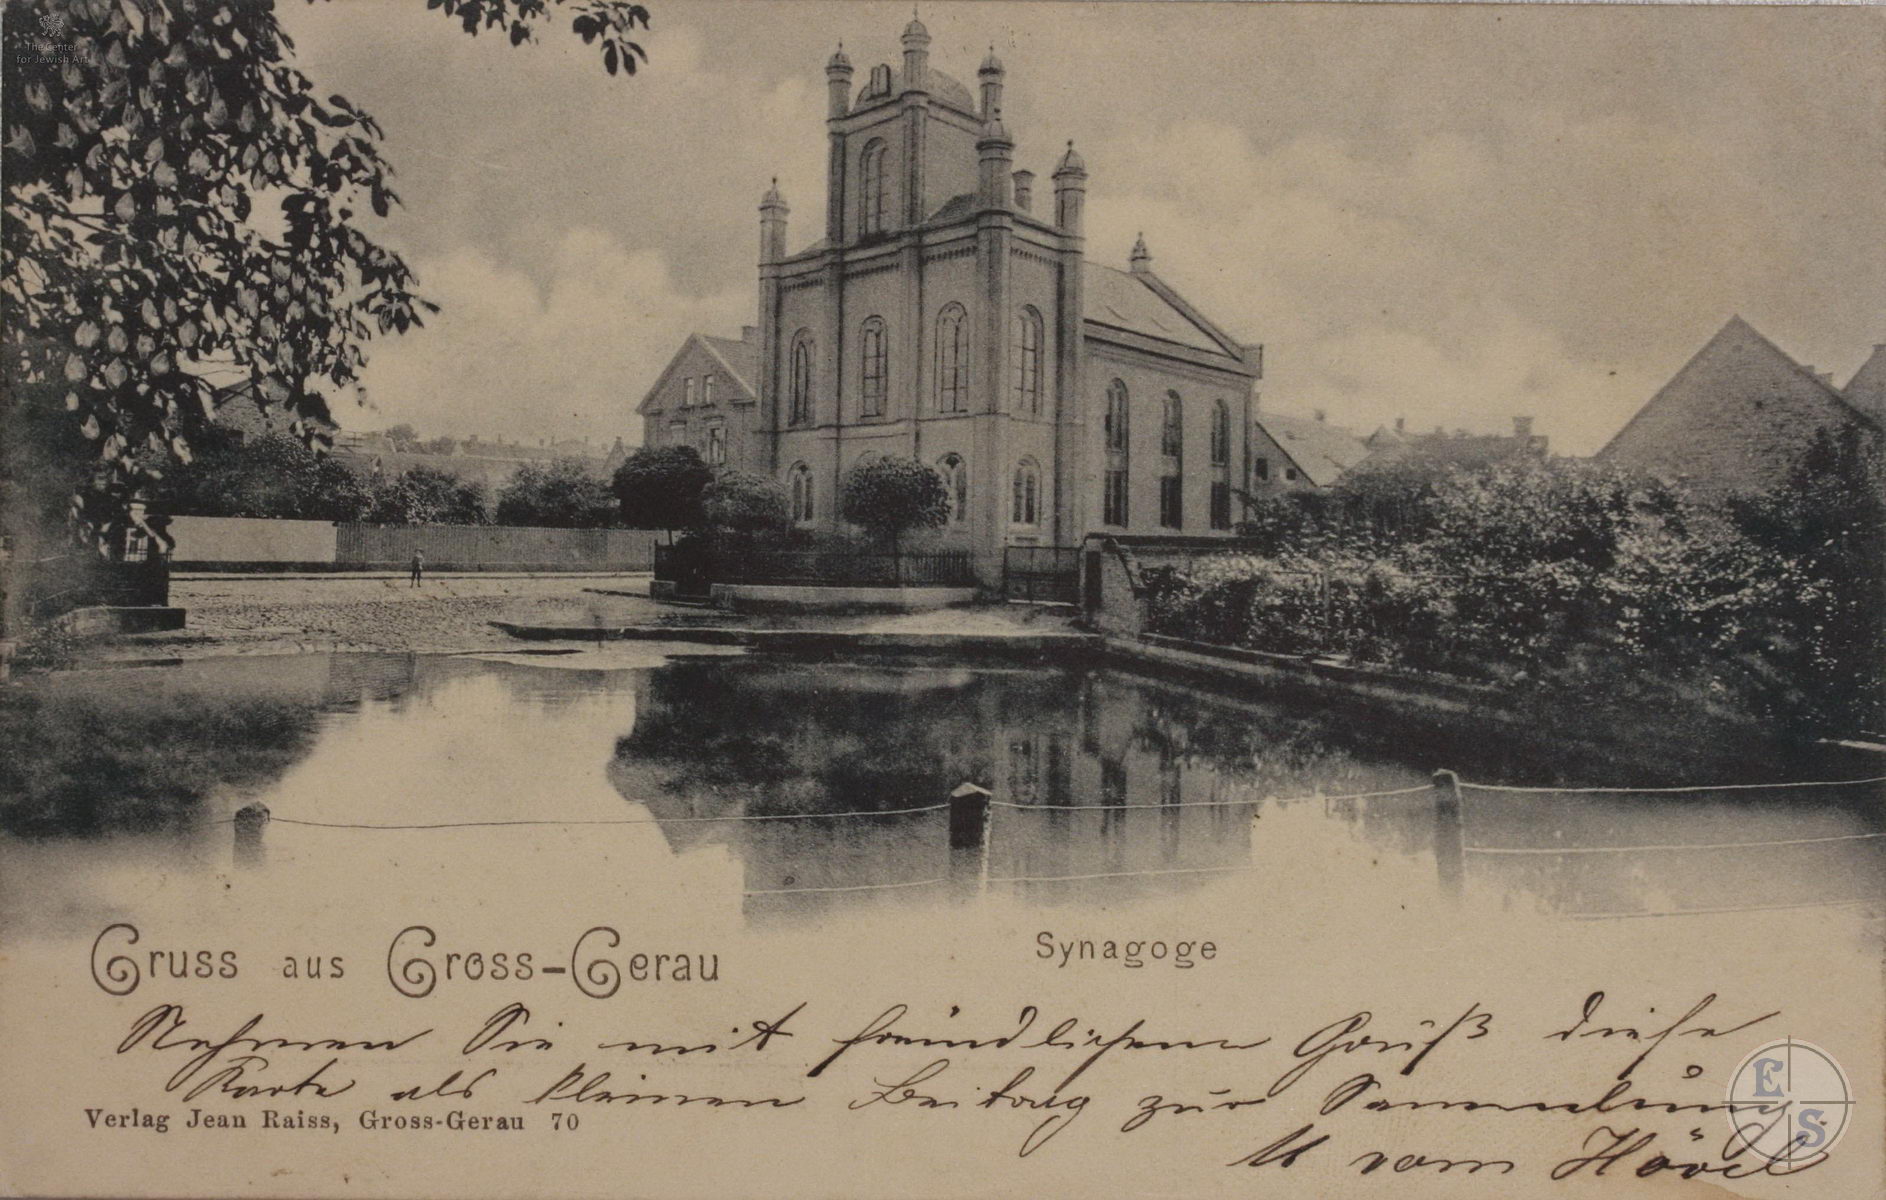 The Center
for Jewish Art
Gruss aus Gross-Gerau
Synagoge
Nehmen Sie mit freundlichem Gruß diese
Karte als kleinen Beitrag zur Sammlung.
Verlag Jean Raiss, Gross-Gerau 70
vom Hövel
E
S